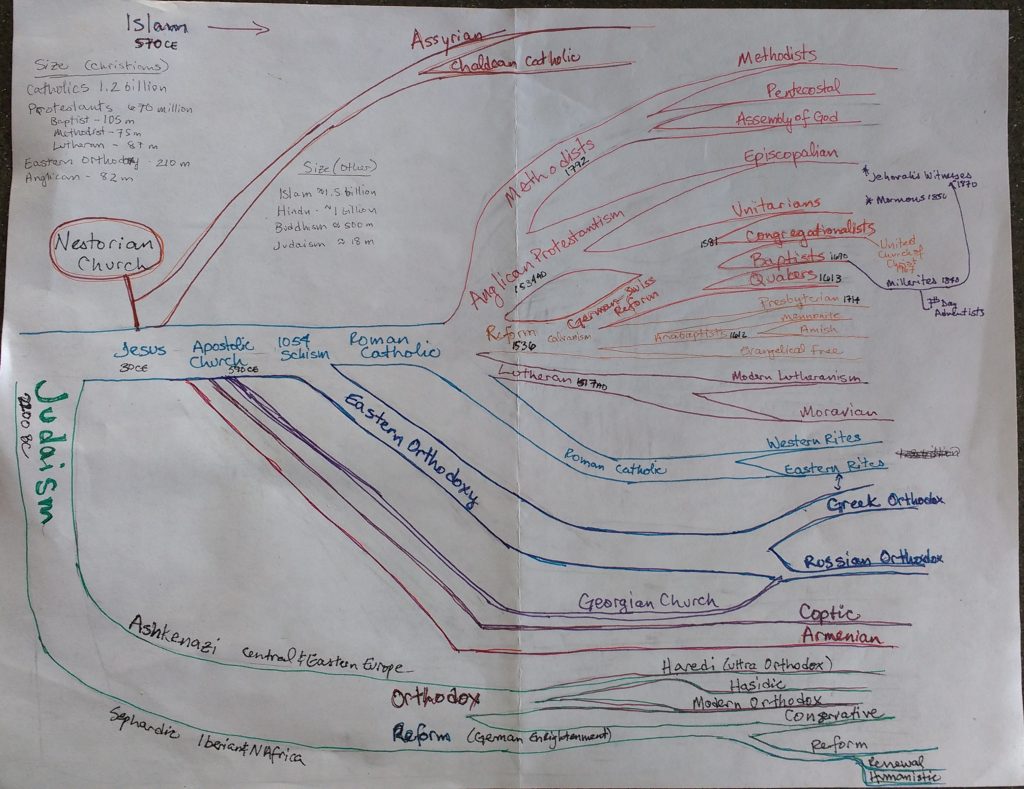 Islam
570CE
Size (Christians)
Catholics 1.2 billion
Protestants - 670 million
Baptist - 105 m
Methodist - 75 m
Lutheran - 87 m
Eastern Orthodoxy - 210 m
Anglican - 82 m
Size (Other)
Islam ≈ 1.5 billion
Hindu - ≈ 1 billion
Buddhism ≈ 500 m
Judaism ≈ 18 m
Nestorian
Church
Assyrian
Chaldean Catholic
Methodists
Pentecostal
Assembly of God
Methodists
1792
Episcopalian
Anglican Protestantism
1534AD
Unitarians
1581
Congregationalists
Baptists 1690
Quakers 1613
* Jehovahs Witnesses
1870
* Mormons 1830
United
Church of
Christ
1967
Millerites 1840
7th Day
Adventists
German Swiss
Reform
Reform
1536
Calvanism
Presbyterian 1714
Mennonite
Anabaptists 1612
Amish
Evangelical Free
Lutheran 1517AD
Modern Lutheranism
Moravian
Jesus
30CE
Apostolic
Church
590CE
1054
Schism
Roman
Catholic
Roman Catholic
Western Rites
Eastern Rites
Eastern Orthodoxy
Greek Orthodox
Russian Orthodox
Georgian Church
Coptic
Armenian
Judaism
BC
Ashkenazi Central & Eastern Europe
Sephardic Iberian & N Africa
Orthodox
Haredi (Ultra Orthodox)
Hasidic
Modern Orthodox
Reform (German Enrightenment)
Conservative
Reform
Renewal
Humanistic